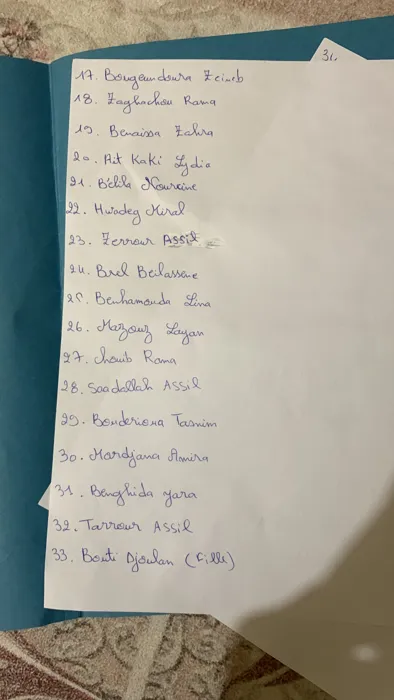 34
17. Bougandoura Zeineb
18. Zaghachou Rama
19. Benaissa Zahra
20. Ait Kaki Lydia
21. Bélila Noureine
22. Hwadeg Miral
23. Zerrour Assil
24. Brel Beilassene
25. Benhamouda Lina
26. Mazouz Layan
27. Chouib Rama
28. Saadallah Assil
29. Bouderioua Tasnim
30. Mardjana Amira
31. Benghida yara
32. Tarrour Assil
33. Bouti Djoulan (Fille)